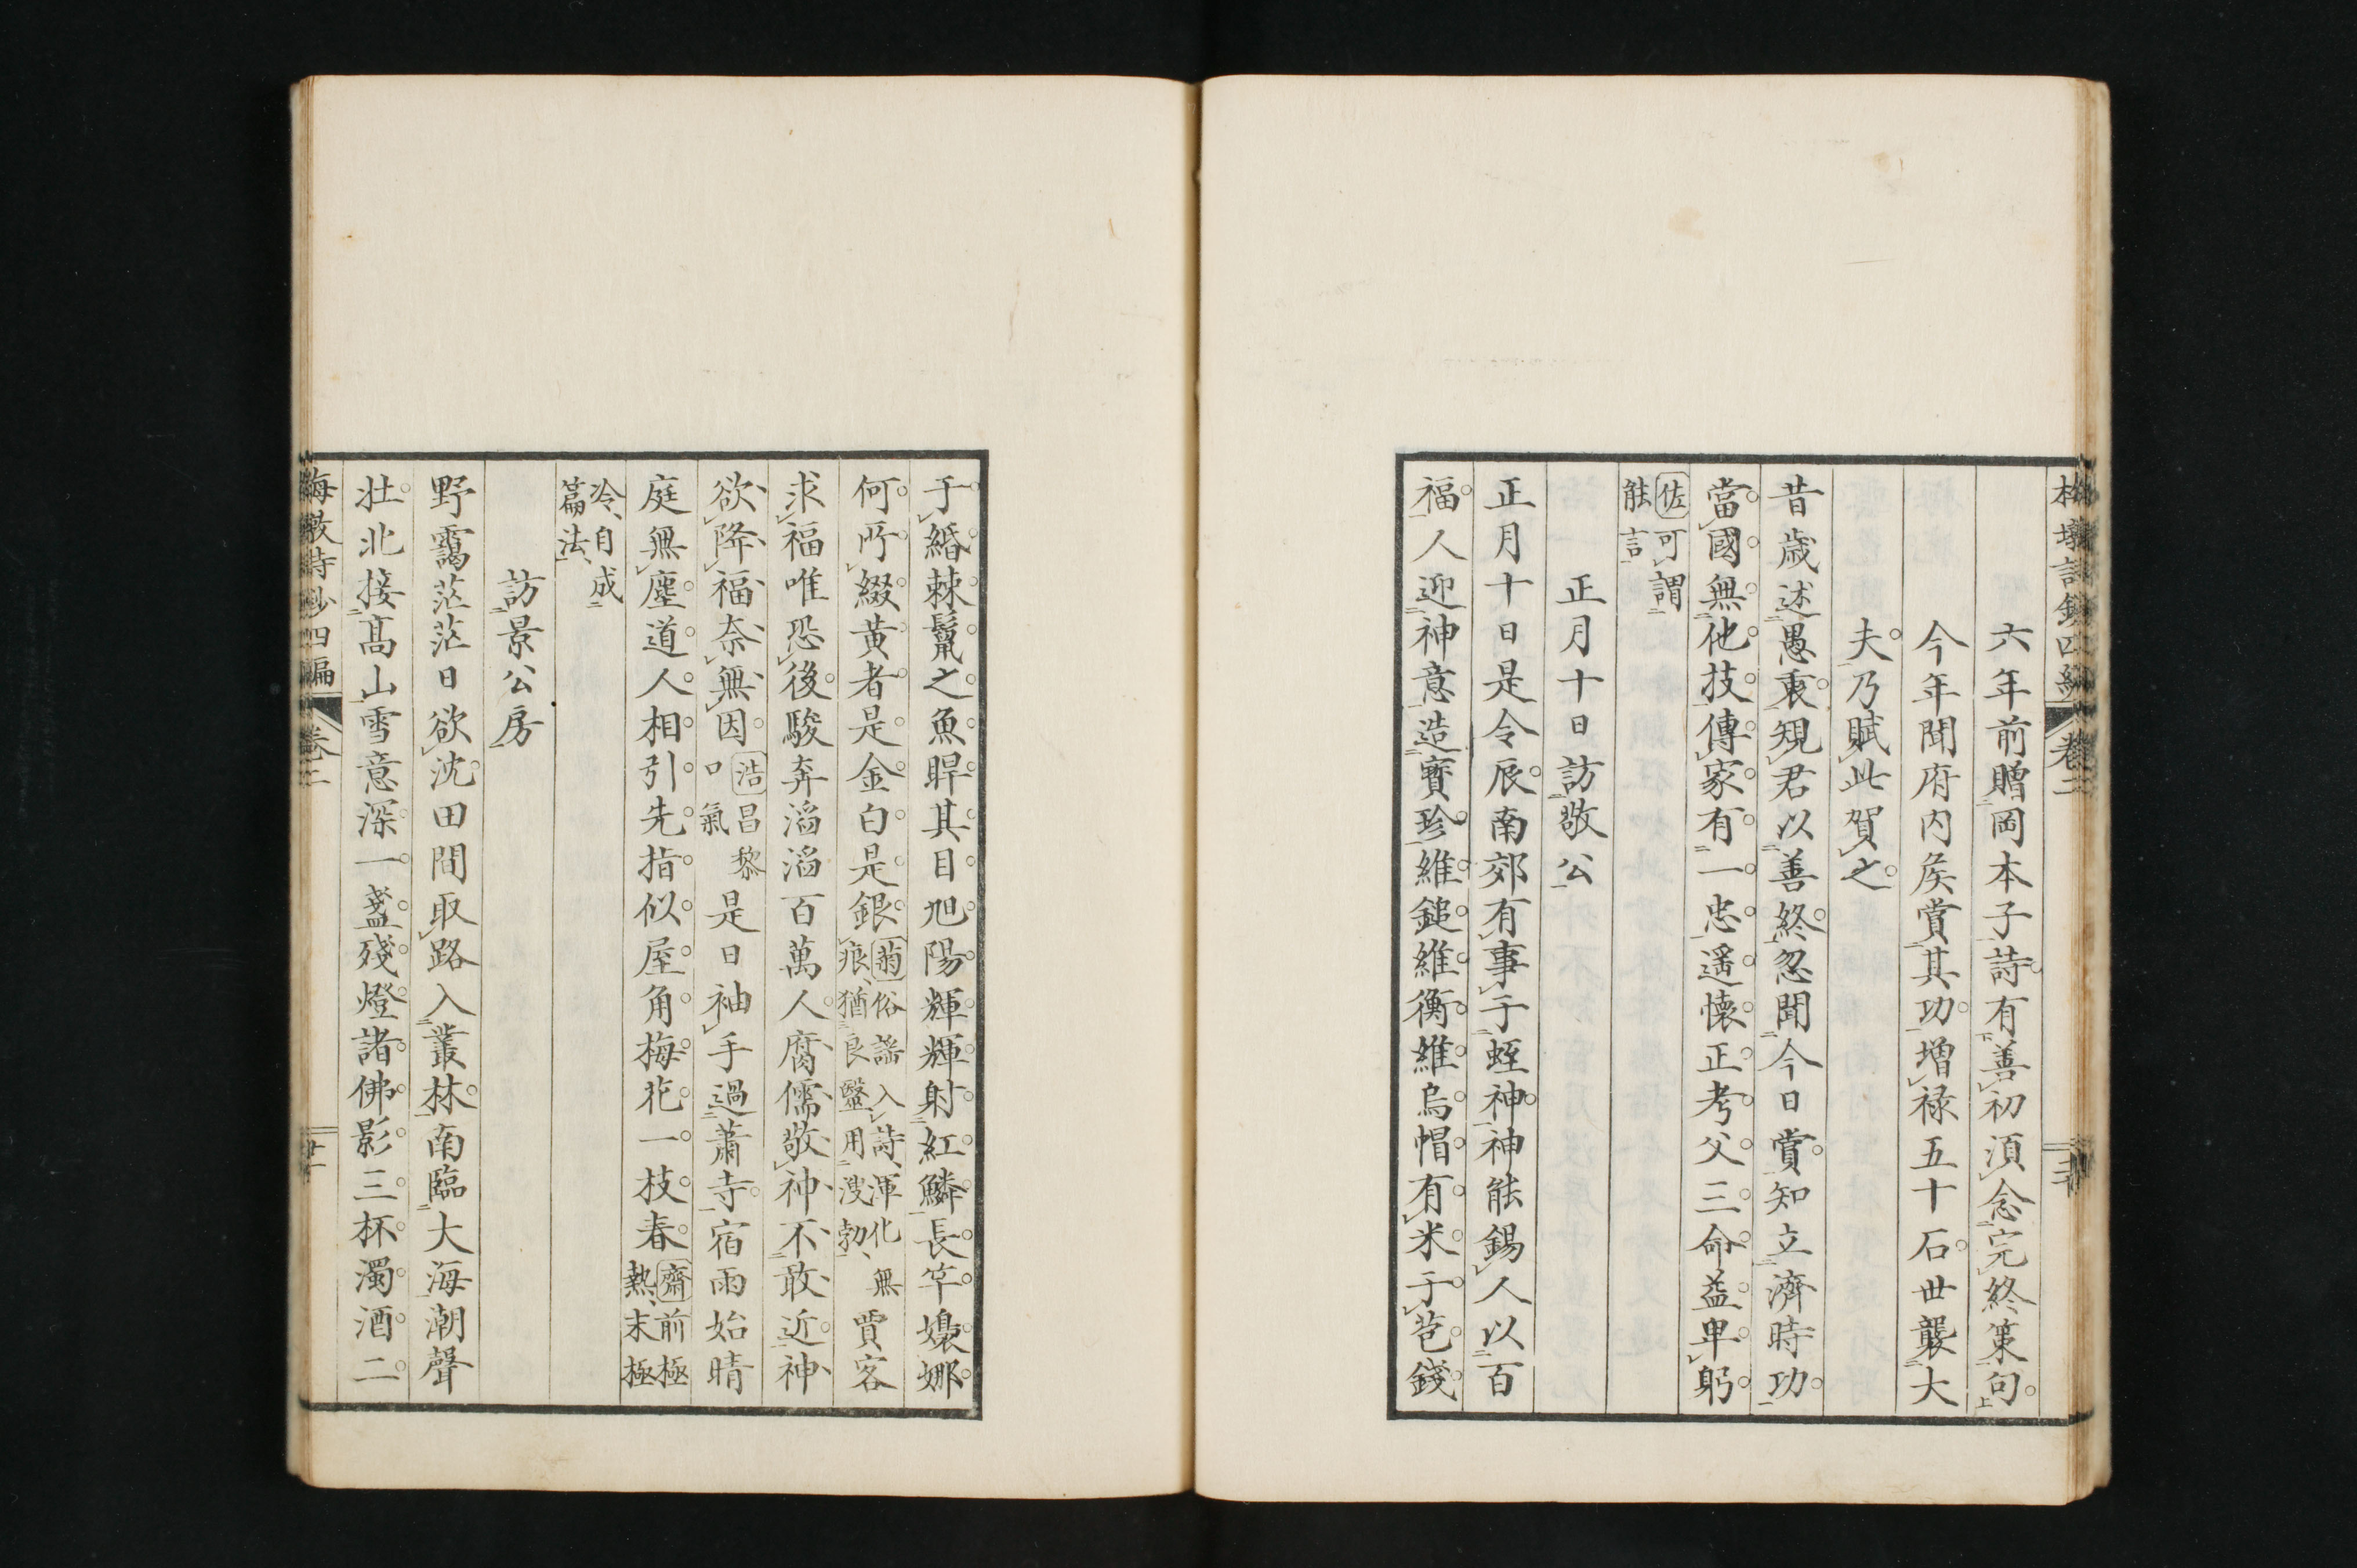 六年前贈岡本子詩有善初須念完終策句
今年聞府内侯賞其功増禄五十石世襲大
夫乃賦此賀之
昔歳述愚衷規君以善終忽聞今日賞知立濟時功
當國無他技傳家有一忠遥懐正考父三命益卑躬
佐可謂
能言
正月十日訪敬公
正月十日是令辰南郊有事于蛭神神能錫人以百
福人迎神意造寳珍維鎚維衡維烏帽有米于苞錢
于緡棘鬣之魚睅其目旭陽輝輝射紅鱗長竿嬝娜
何所綴黄者是金白是銀菊俗謡入詩渾化無痕猶良毉用溲勃賈客
求福唯恐後駿奔滔滔百萬人腐儒敬神不敢近神
欲降福奈無因浩昌黎口氣是日袖手過蕭寺宿雨始晴
庭無塵道人相引先指似屋角梅花一枝春齋前極熱末極
冷自成
篇法
訪景公房
野靄茫茫日欲沈田間取路入叢林南臨大海潮聲
壮北接髙山雪意深一盞殘燈諸佛影三杯濁酒二
梅墩詩鈔四編 卷二